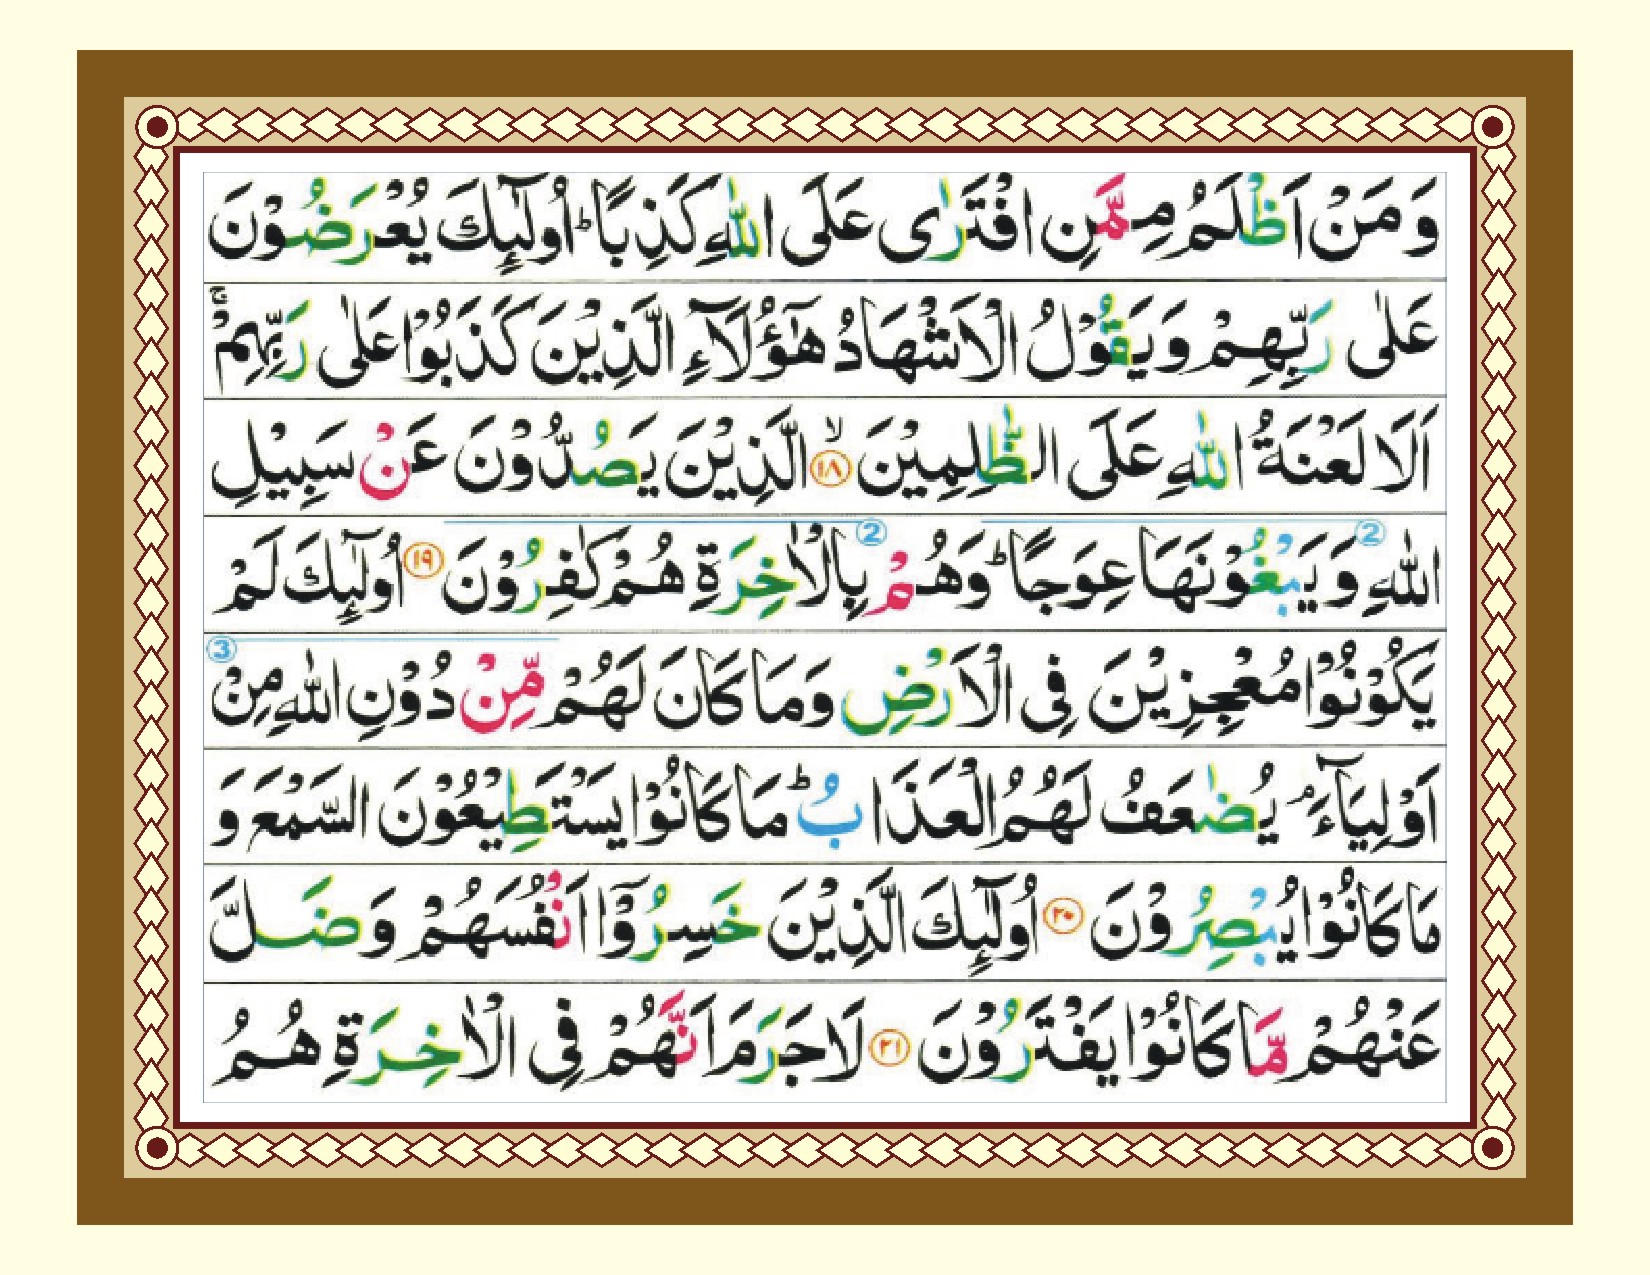 وَ مَنْ اَظْلَمُ مِمَّنِ افْتَرٰى عَلَى اللّٰهِ كَذِبًا ؕ اُولٰٓئِكَ يُعْرَضُوْنَ
عَلٰى رَبِّهِمْ وَ يَقُوْلُ الْاَشْهَادُ هٰٓؤُلَآءِ الَّذِيْنَ كَذَبُوْا عَلٰى رَبِّهِمْ ۚ
اَلَا لَعْنَةُ اللّٰهِ عَلَى الظّٰلِمِيْنَ ۙ ۱۸ الَّذِيْنَ يَصُدُّوْنَ عَنْ سَبِيْلِ
2 2
اللّٰهِ وَ يَبْغُوْنَهَا عِوَجًا ؕ وَ هُمْ بِالْاٰخِرَةِ هُمْ كٰفِرُوْنَ ۱۹ اُولٰٓئِكَ لَمْ
3
يَكُوْنُوْا مُعْجِزِيْنَ فِى الْاَرْضِ وَمَا كَانَ لَهُمْ مِّنْ دُوْنِ اللّٰهِ مِنْ
اَوْلِيَآءَ ۘ يُضٰعَفُ لَهُمُ الْعَذَابُ ؕ مَا كَانُوْا يَسْتَطِيْعُوْنَ السَّمْعَ وَ
مَا كَانُوْا يُبْصِرُوْنَ ۲۰ اُولٰٓئِكَ الَّذِيْنَ خَسِرُوْٓا اَنْفُسَهُمْ وَ ضَلَّ
عَنْهُمْ مَّا كَانُوْا يَفْتَرُوْنَ ۲۱ لَا جَرَمَ اَنَّهُمْ فِى الْاٰخِرَةِ هُمُ